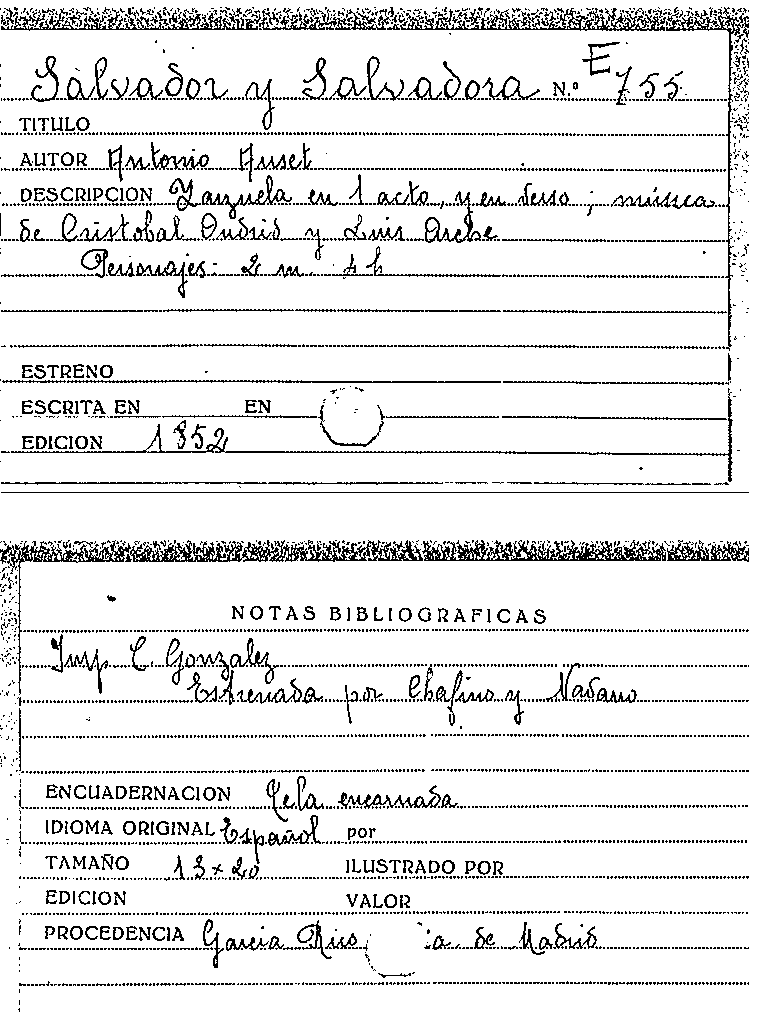 Salvador y Salvadora N.º E 755
TITULO
AUTOR Antonio Auset
DESCRIPCION Zarzuela en 1 acto, y en verso; música
de Cristobal Oudrid y Luis Arche
Personajes: 2 m. 4 h
ESTRENO
ESCRITA EN EN
EDICION 1852
NOTAS BIBLIOGRAFICAS
Imp. C. Gonzalez
Estrenada por Chafino y
ENCUADERNACION Tela encarnada
IDIOMA ORIGINAL Español por
TAMAÑO 13 x 20 ILUSTRADO POR
EDICION VALOR
PROCEDENCIA Garcia Rico de Madrid